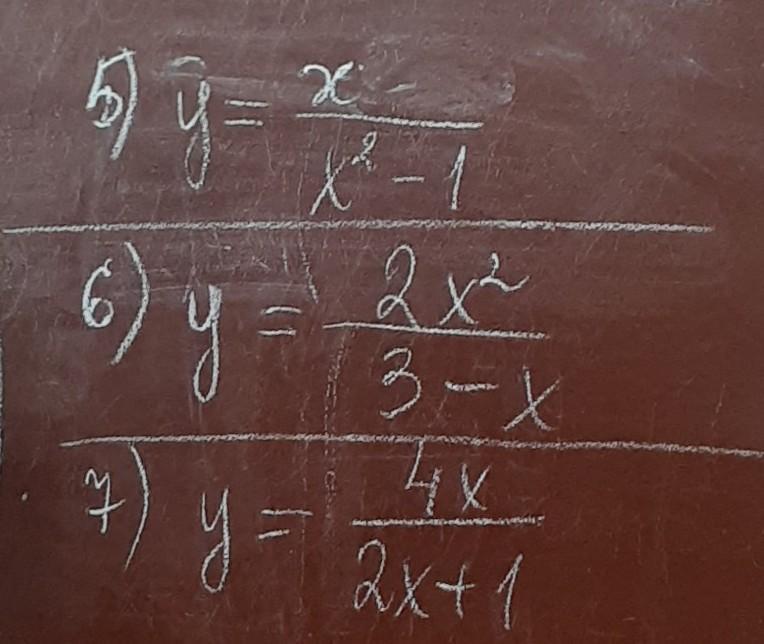 5) y = x / (x² - 1)
6) y = 2x² / (3 - x)
7) y = 4x / (2x + 1)